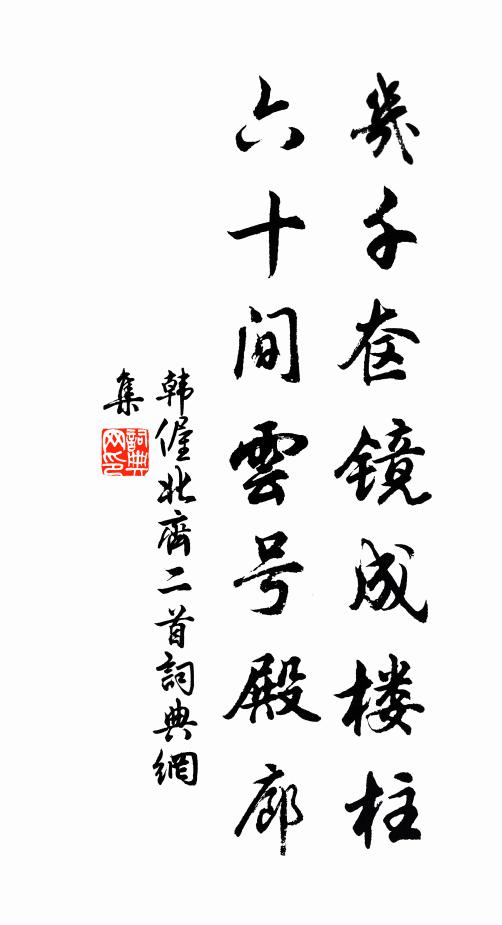 幾千奁镜成楼柱
六十间雲号殿廊
韩偓北齊二首詞典網
集
詞典
网印